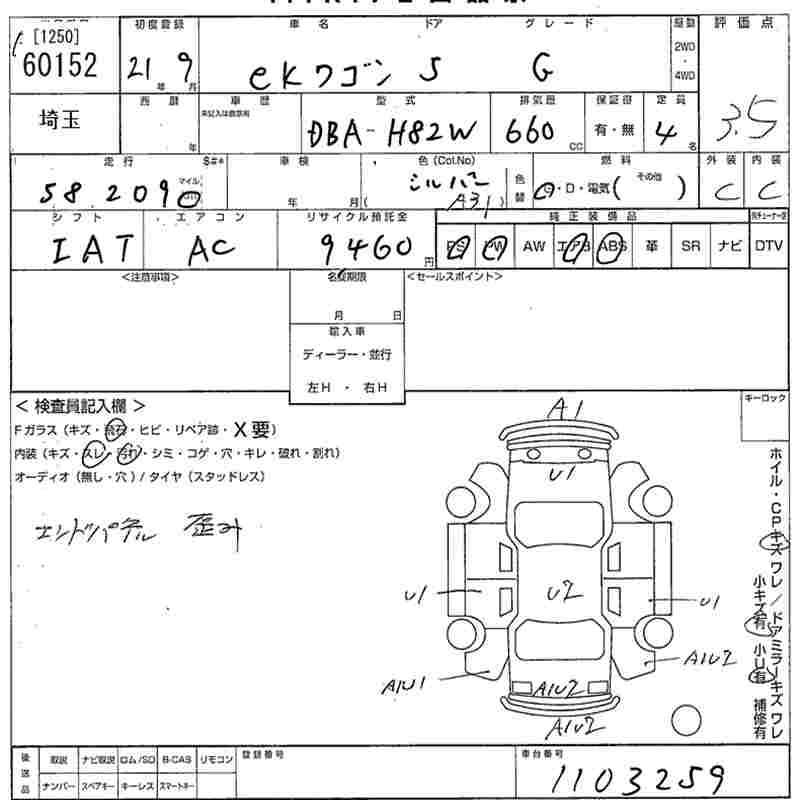 [1250]
60152
初度登録
21年 9月
車名 ドア グレード
eKワゴン 5 G
駆動
2WD
・
4WD
評価点
3.5
埼玉
西暦
年
車歴
未記入は自家用
型式
DBA-H82W
排気量
660 CC
保証書
有・無
定員
4名
走行 $#*
58,209 マイル
車検
年 月
色(Col.No)
シルバー
(A31)
色替
燃料
G・D・電気( その他 )
外装
C
内装
C
シフト
IAT
エアコン
AC
リサイクル預託金
9460円
純正装備品
PS PW AW エアB ABS 革 SR ナビ DTV
<注意事項>
名変期限
月 日
輸入車
ディーラー・並行
左H ・ 右H
<セールスポイント>
キーロック
< 検査員記入欄 >
Fガラス(キズ・飛石・ヒビ・リペア跡・X要)
内装(キズ・スレ・汚れ・シミ・コゲ・穴・キレ・破れ・割れ)
オーディオ(無し・穴)/タイヤ(スタッドレス)
エンドパネル 歪み
A1
U1
U1
U2
U1
A1U1
A1U2
A1U2
A1U2
ホイル・CPキズ ワレ / ドアミラーキズ ワレ
小キズ有 小U有 補修有
後送品
取説 ナビ取説 ロム/SD B-CAS リモコン
ナンバー スペアキー キーレス スマートキー
登録番号
車台番号
1103259